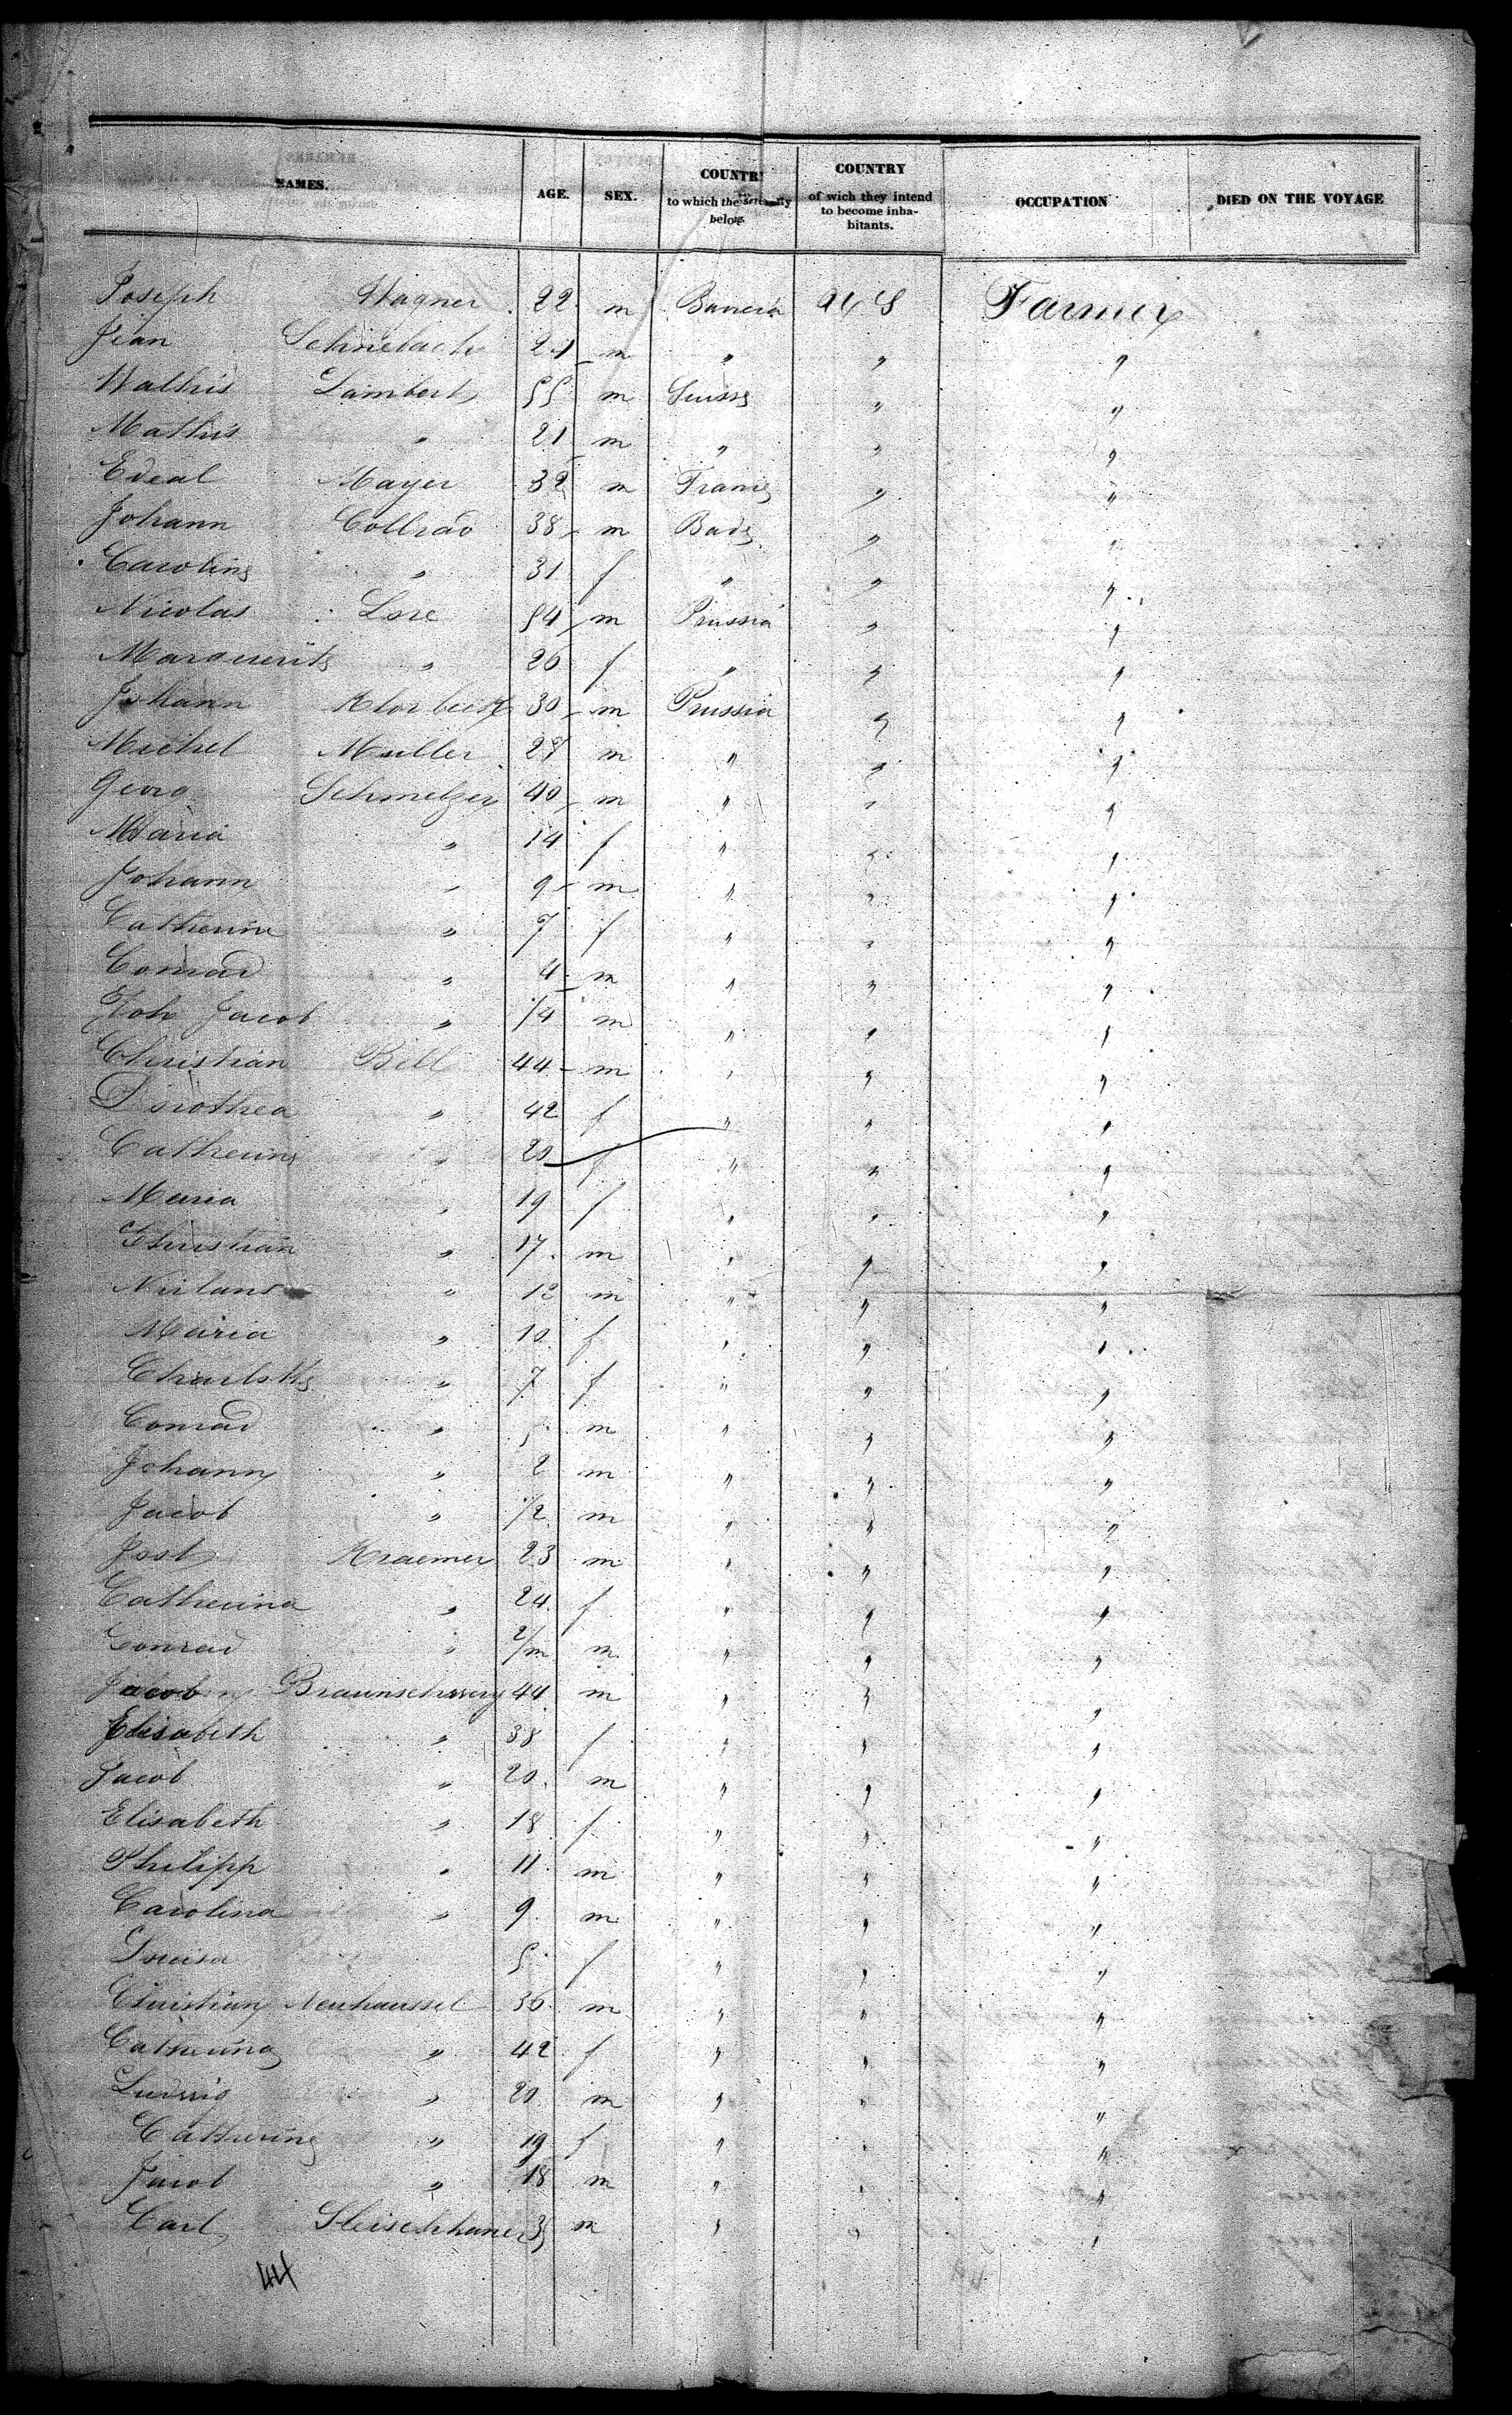 NAMES. AGE. SEX. COUNTRY to which they severally belong. COUNTRY of wich they intend to become inhabitants. OCCUPATION DIED ON THE VOYAGE
Joseph Wagner 22 m Bavaria U S Farmer
Jean Schnebach 21 m " " "
Mathis Lambert 55 m Suisse " "
Mathis " 21 m " " "
Mayer 32 m France " "
Johann Collrad 38 m Bade " "
Caroline " 31 f " " "
Nicolas Lore 54 m Prussia " "
Marguerite " 26 f " " "
Johann 30 m Prussia " "
Michel Muller 27 m " " "
Georg Schmelzer 40 m " " "
Maria " 14 f " " "
Johann " 9 m " " "
Catherina " 7 f " " "
Conrad " 4 m " " "
Joh Jacob " 1/4 m " " "
Christian Bill 44 m " " "
Dorothea " 42 f " " "
Catherine " 20 f " " "
Maria " 19 f " " "
Christian " 17 m " " "
" 12 m " " "
Maria " 10 f " " "
Charlotte " 7 f " " "
Conrad " 5 m " " "
Johann " 2 m " " "
Jacob " 1/2 m " " "
Jost Kraemer 23 m " " "
Catherina " 24 f " " "
Conrad " 2/m m " " "
Jacob Braunschweig 44 m " " "
Elisabeth " 38 f " " "
Jacob " 20 m " " "
Elisabeth " 18 f " " "
Philipp " 11 m " " "
Carolina " 9 m " " "
Louisa 5 f " " "
Christian Neuhaussel 36 m " " "
Catherina " 42 f " " "
Ludwig " 20 m " " "
Catherine " 19 f " " "
Jacob " 18 m " " "
Carl 35 m " " "
44